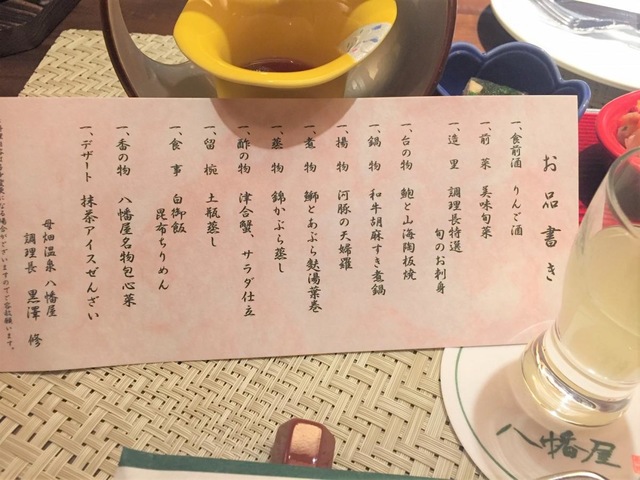 お品書き
一、食前酒 りんご酒
一、前菜 美味旬菜
一、造里 調理長特選
旬のお刺身
一、台の物 鮑と山海陶板焼
一、鍋物 和牛胡麻すき煮鍋
一、揚物 河豚の天婦羅
一、煮物 鰤とあぶら麩湯葉巻
一、蒸物 錦かぶら蒸し
一、酢の物 津合蟹、サラダ仕立
一、留椀 土瓶蒸し
一、食事 白御飯
昆布ちりめん
一、香の物 八幡屋名物包心菜
一、デザート 抹茶アイスぜんざい
母畑温泉 八幡屋
調理長 黒澤 修
になる場合がございますのでご容赦願います。
八幡屋